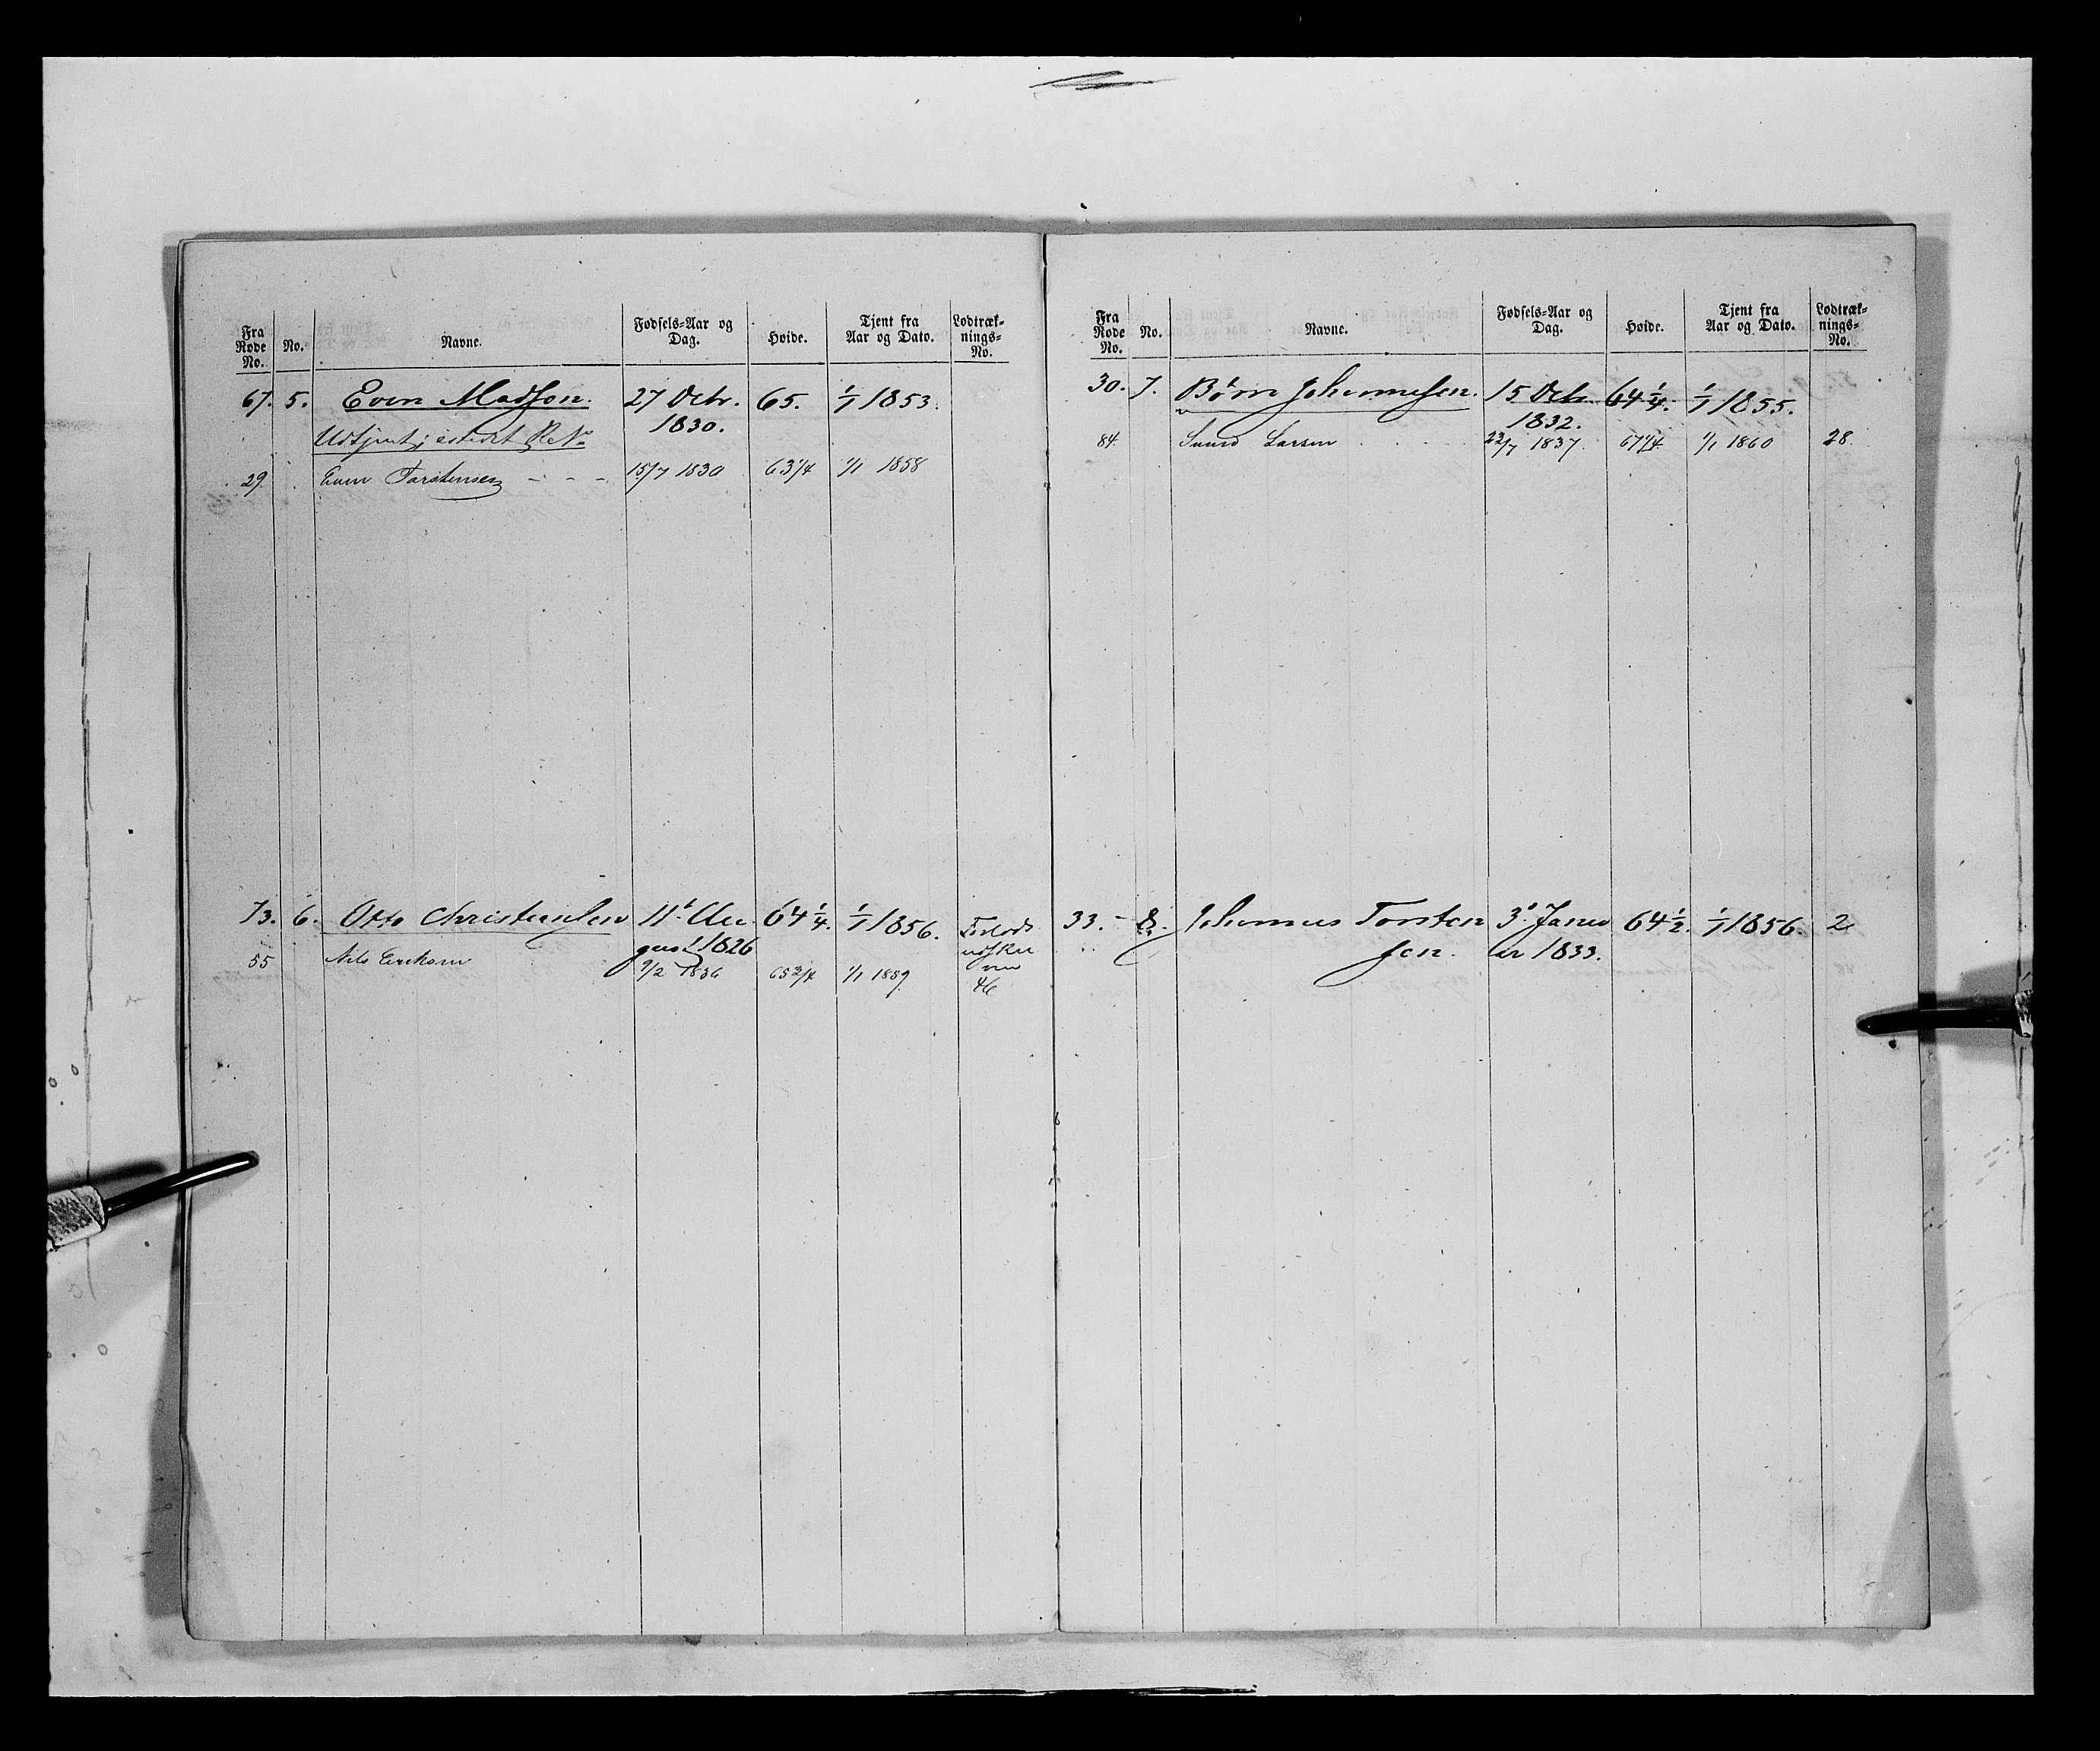 Fra Rode No. No. Navne. Fødsels-Aar og Dag. Høide. Tjent fra Aar og Dato. Lodtræk-nings-No.
67. 5. Even Madsen. 27 Octr. 65. 1/1 1853.
Udtjent; 1830.
29. Even Torstensen - - - 15/7 1830 63 1/4 1/1 1858
73. 6. Otto Christensen 11te Au 64 1/4. 1/1 1856.
gust 1826
55 Nils Ericksen 9/2 1836 65 2/4 1/1 1859 46
Fra Rode No. No. Navne. Fødsels-Aar og Dag. Høide. Tjent fra Aar og Dato. Lodtræk-nings-No.
30. 7. Børn Johannesen. 15 Octr 64 1/4. 1/1 1855.
1832.
84. Larsen 22/7 1837. 67 1/4. 1/1 1860 28.
33. - 8. Johannes Torsten 3de Janu 64 1/2. 1/1 1856. 2
sen. ar 1833.